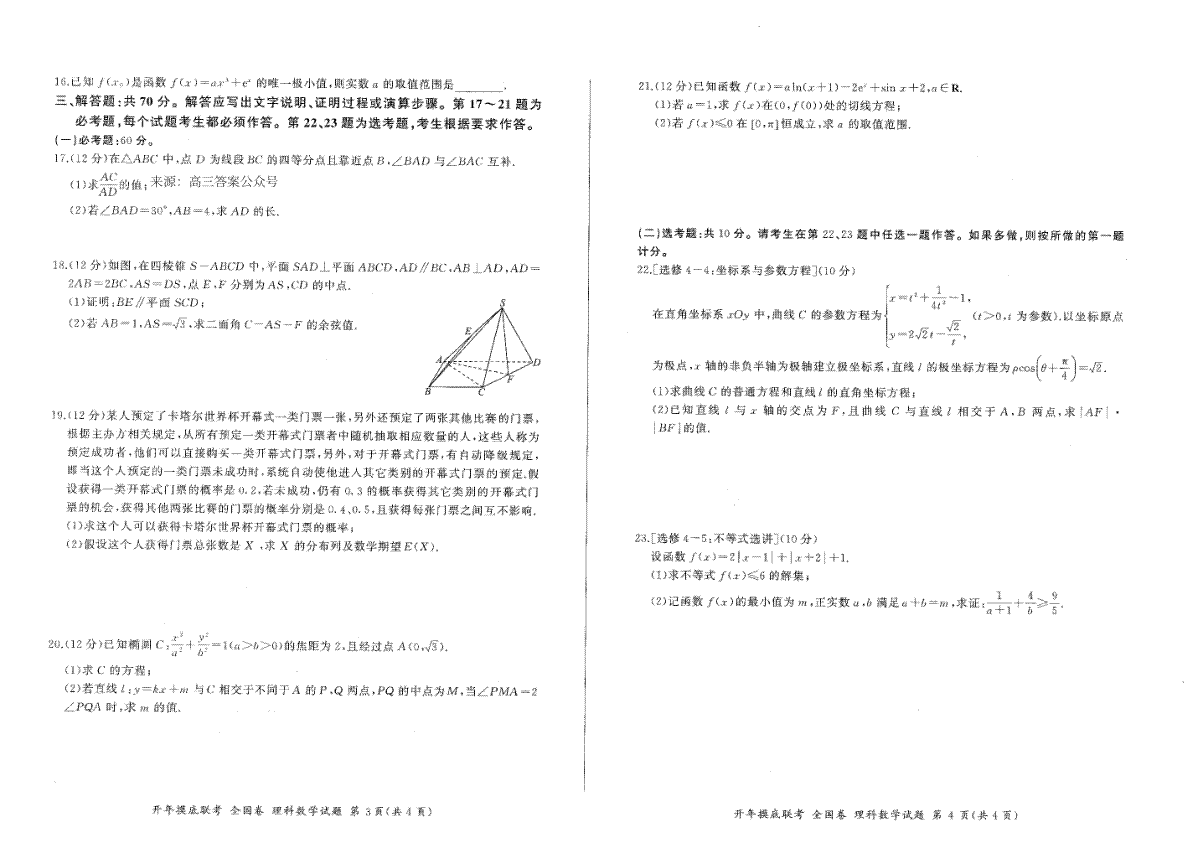 16.已知 f(x₀)是函数 f(x)=ax³+eˣ 的唯一极小值,则实数 a 的取值范围是________.
三、解答题:共 70 分。解答应写出文字说明、证明过程或演算步骤。第 17～21 题为
必考题,每个试题考生都必须作答。第 22、23 题为选考题,考生根据要求作答。
(一)必考题:60 分。
17.(12 分)在△ABC 中,点 D 为线段 BC 的四等分点且靠近点 B,∠BAD 与∠BAC 互补.
(1)求AC/AD的值; 来源: 高三答案公众号
(2)若∠BAD=30°,AB=4,求 AD 的长.
18.(12 分)如图,在四棱锥 S-ABCD 中,平面 SAD⊥平面 ABCD,AD∥BC,AB⊥AD,AD=
2AB=2BC,AS=DS,点 E、F 分别为 AS,CD 的中点.
(1)证明:BE∥平面 SCD;
(2)若 AB=1,AS=√2,求二面角 C-AS-F 的余弦值.
S
E
A
D
F
B
C
19.(12 分)某人预定了卡塔尔世界杯开幕式一类门票一张,另外还预定了两张其他比赛的门票,
根据主办方相关规定,从所有预定一类开幕式门票者中随机抽取相应数量的人,这些人称为
预定成功者,他们可以直接购买一类开幕式门票,另外,对于开幕式门票,有自动降级规定,
即当这个人预定的一类门票未成功时,系统自动使他进入其它类别的开幕式门票的预定.假
设获得一类开幕式门票的概率是 0.2,若未成功,仍有 0.3 的概率获得其它类别的开幕式门
票的机会,获得其他两张比赛的门票的概率分别是 0.4、0.5,且获得每张门票之间互不影响.
(1)求这个人可以获得卡塔尔世界杯开幕式门票的概率;
(2)假设这个人获得门票总张数是 X ,求 X 的分布列及数学期望 E(X).
20.(12 分)已知椭圆 C:x²/a²+y²/b²=1(a>b>0)的焦距为 2,且经过点 A(0,√3).
(1)求 C 的方程;
(2)若直线 l:y=kx+m 与 C 相交于不同于 A 的 P、Q 两点,PQ 的中点为 M,当∠PMA=2
∠PQA 时,求 m 的值.
开年摸底联考 全国卷 理科数学试题 第 3 页(共 4 页)
21.(12 分)已知函数 f(x)=aln(x+1)-2eˣ+sin x+2,a∈R.
(1)若 a=1,求 f(x)在(0,f(0))处的切线方程;
(2)若 f(x)⩽0 在 [0,π]恒成立,求 a 的取值范围.
(二)选考题:共 10 分。请考生在第 22、23 题中任选一题作答。如果多做,则按所做的第一题
计分。
22.[选修 4-4:坐标系与参数方程](10 分)
在直角坐标系 xOy 中,曲线 C 的参数方程为{x=t²+1/4t²-1, y=2√2t-√2/t, (t>0,t 为参数).以坐标原点
为极点,x 轴的非负半轴为极轴建立极坐标系,直线 l 的极坐标方程为 ρcos(θ+π/4)=√2.
(1)求曲线 C 的普通方程和直线 l 的直角坐标方程;
(2)已知直线 l 与 x 轴的交点为 F,且曲线 C 与直线 l 相交于 A、B 两点,求 |AF|·
|BF|的值.
23.[选修 4-5:不等式选讲](10 分)
设函数 f(x)=2|x-1|+|x+2|+1.
(1)求不等式 f(x)⩽6 的解集;
(2)记函数 f(x)的最小值为 m,正实数 a,b 满足 a+b=m,求证:1/(a+1)+4/b⩾9/5.
开年摸底联考 全国卷 理科数学试题 第 4 页(共 4 页)